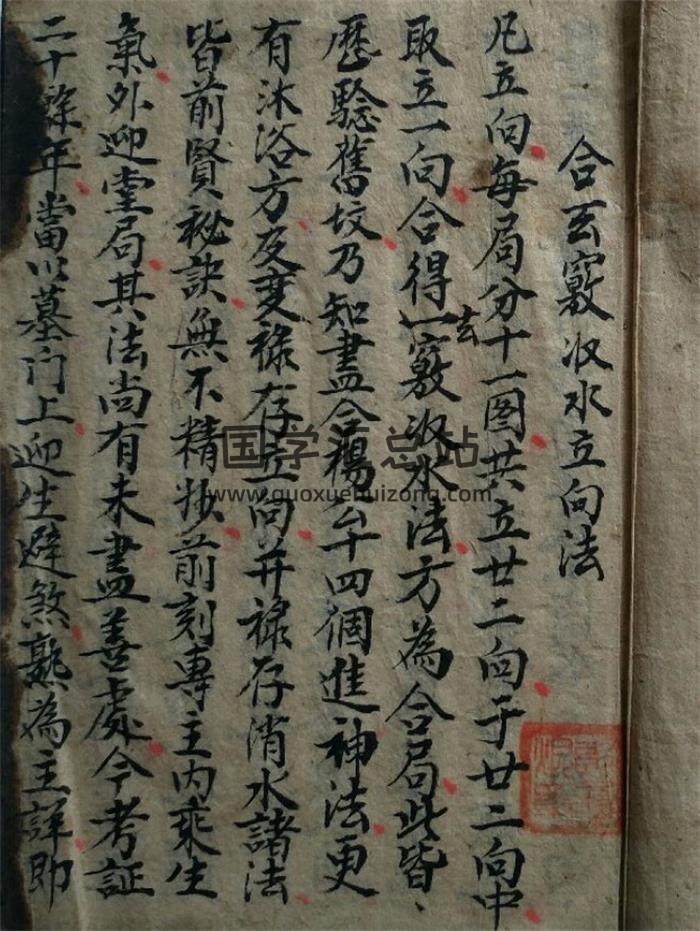 合玄竅収水立向法
凡立向每局分十一图共立廿二向于廿二向中
取立一向合得一玄竅収水法方為合局此皆、
歷驗舊坟乃知盡合楊公十四個進神法更
有沐浴方及变祿存立向并祿存消水諸法
皆前賢秘訣無不精妙前刻專主內乘生
氣外迎堂局其法尚有未盡善處今考証
二十餘年當以墓门上迎生避煞為主詳即
国学汇总站
www.guoxuehuizong.com